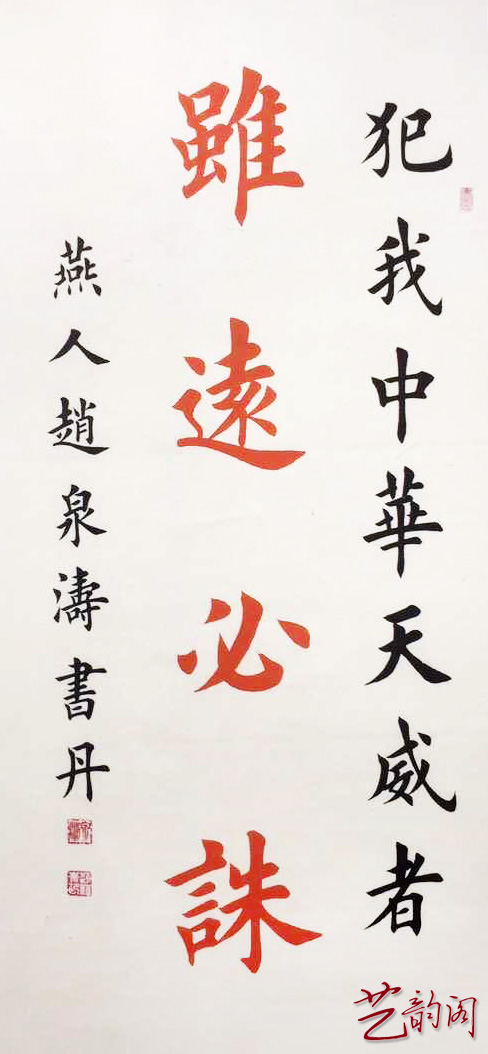 犯我中華天威者
雖遠必誅
燕人趙泉濤書丹
艺韵阁